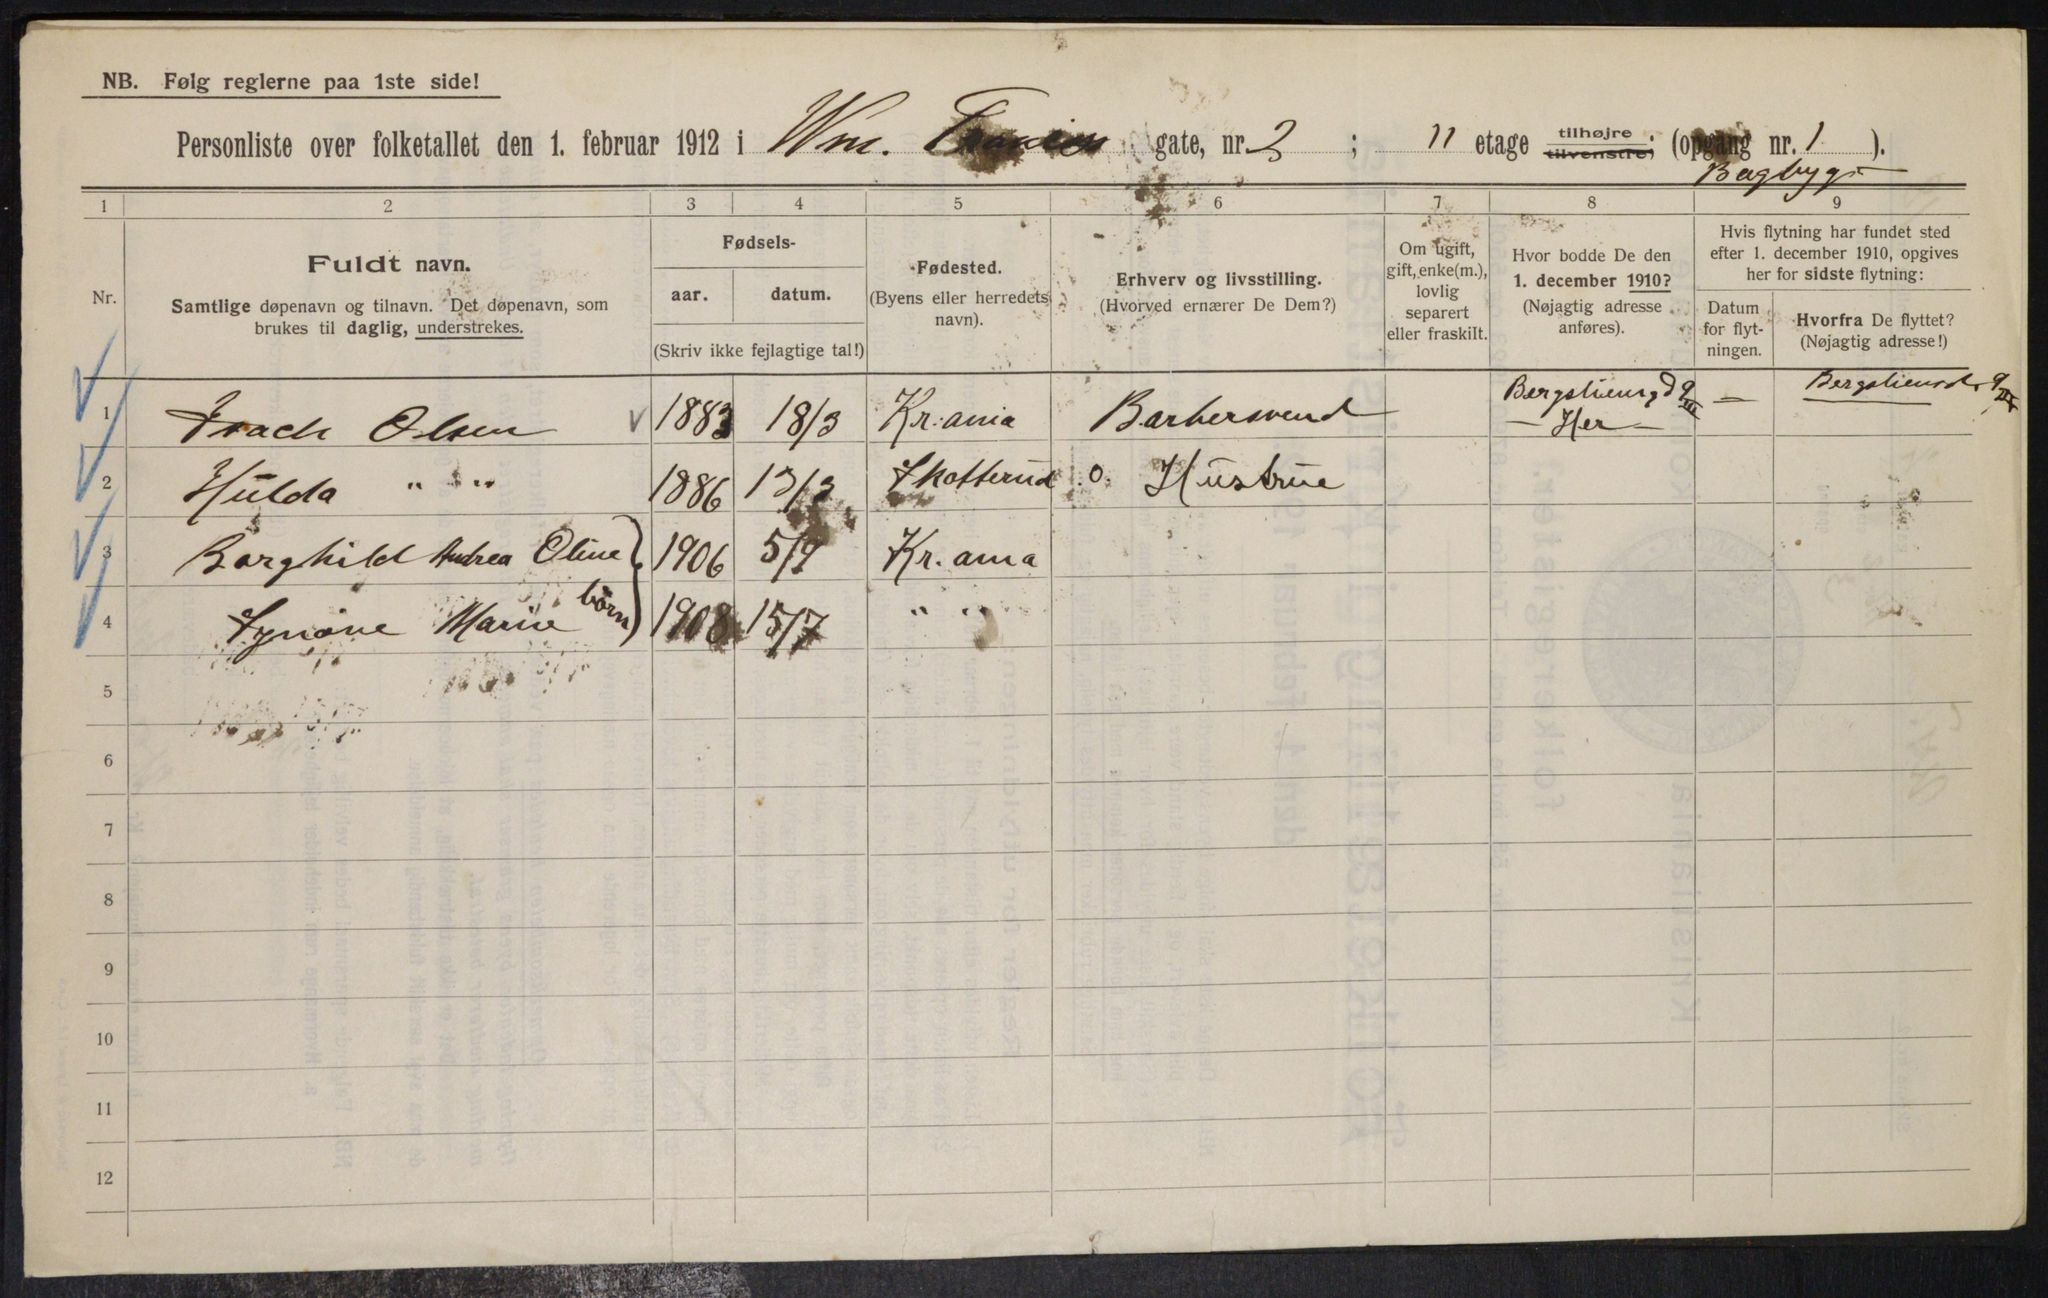 NB. Følg reglerne paa 1ste side!
Personliste over folketallet den 1. februar 1912 i Wm. Thranes gate, nr. 2 ; 11 etage tilhøjre tilvenstre; (opgang nr. 1 ).
Bagbygn
1 2 3 4 5 6 7 8 9
Nr.
Fuldt navn.
Samtlige døpenavn og tilnavn. Det døpenavn, som
brukes til daglig, understrekes.
Fødsels-
aar. datum.
(Skriv ikke fejlagtige tal!)
Fødested.
(Byens eller herredets
navn).
Erhverv og livsstilling.
(Hvorved ernærer De Dem?)
Om ugift,
gift, enke(m.),
lovlig
separert
eller fraskilt.
Hvor bodde De den
1. december 1910?
(Nøjagtig adresse
anføres).
Hvis flytning har fundet sted
efter 1. december 1910, opgives
her for sidste flytning:
Datum
for flyt-
ningen.
Hvorfra De flyttet?
(Nøjagtig adresse!)
1 Isach Olsen 1883 18/3 Kr.ania Barbersvend Bergsliensgd 9 III — Bergsliensd. 9 III
— Her —
2 Hulda " " " 1886 13/3 Skotterud o. Hustrue
3 Borghild Andrea Oline 1906 5/9 Kr. ania
børn
4 Synøve Marie 1908 15/7 " "
5
6
7
8
9
10
11
12